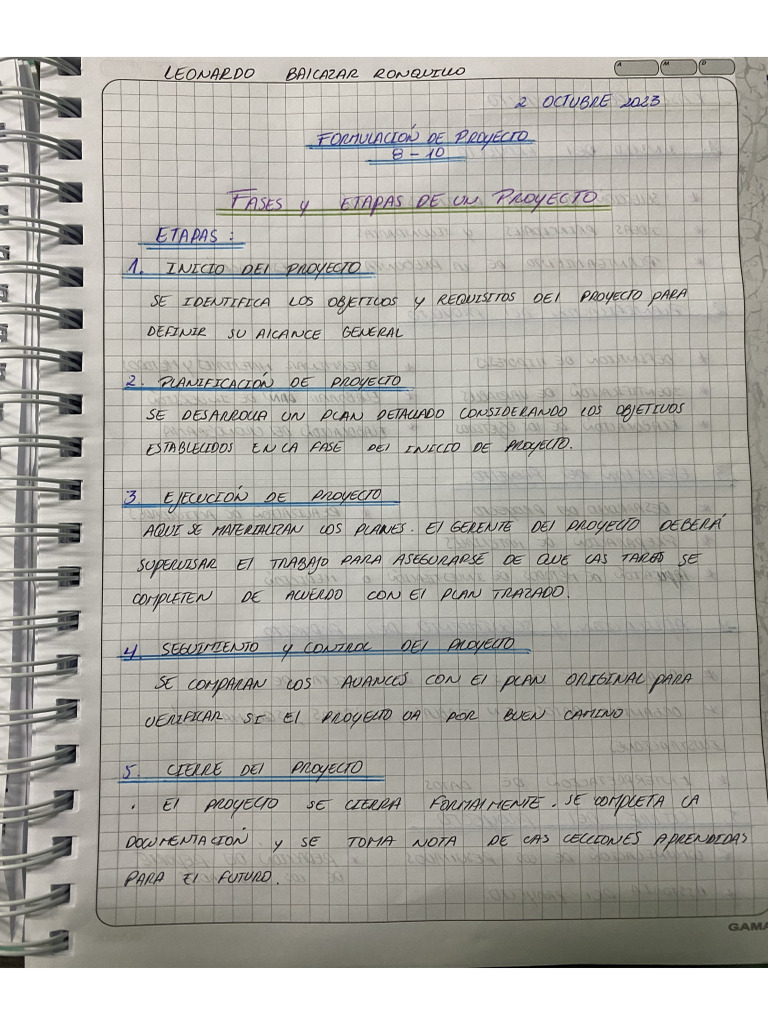 LEONARDO BALCAZAR RONQUILLO
A M D
2 OCTUBRE 2023
FORMULACIÓN DE PROYECTO
8 - 10
FASES Y ETAPAS DE UN PROYECTO
ETAPAS :
1. INICIO DEL PROYECTO
SE IDENTIFICA LOS OBJETIVOS Y REQUISITOS DEL PROYECTO PARA
DEFINIR SU ALCANCE GENERAL
2. PLANIFICACIÓN DE PROYECTO
SE DESARROLLA UN PLAN DETALLADO CONSIDERANDO LOS OBJETIVOS
ESTABLECIDOS EN LA FASE DEL INICIO DE PROYECTO.
3. EJECUCIÓN DE PROYECTO
AQUI SE MATERIALIZAN LOS PLANES. El GERENTE DEL PROYECTO DEBERÁ
SUPERVISAR El TRABAJO PARA ASEGURARSE DE QUE LAS TAREAS SE
COMPLETEN DE ACUERDO CON El PLAN TRAZADO.
4. SEGUIMIENTO Y CONTROL DEL PROYECTO
SE COMPARAN LOS AVANCES CON El PLAN ORIGINAL PARA
VERIFICAR SI El PROYECTO VA POR BUEN CAMINO
5. CIERRE DEL PROYECTO
. El PROYECTO SE CIERRA FORMALMENTE. SE COMPLETA LA
DOCUMENTACIÓN Y SE TOMA NOTA DE LAS LECCIONES APRENDIDAS
PARA El FUTURO.
GAMA